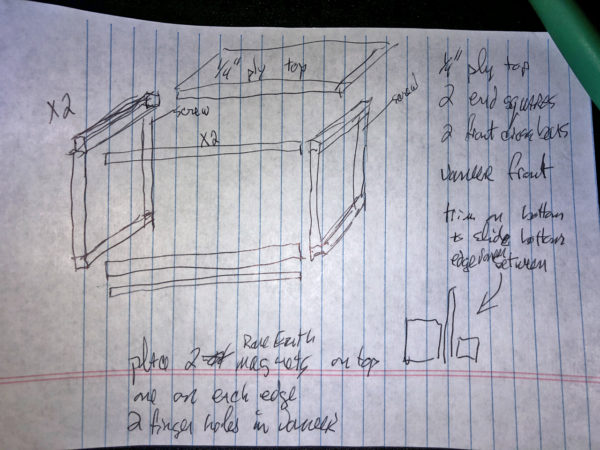 1/4" ply top
X2
screw
X2
screw
1/4" ply top
2 end squares
2 front cross bars
vaneer front
trim on bottom
to slide bottom
edge between
place 2 Rare Earth
magnets on top
one on each edge
2 finger holes in vaneer